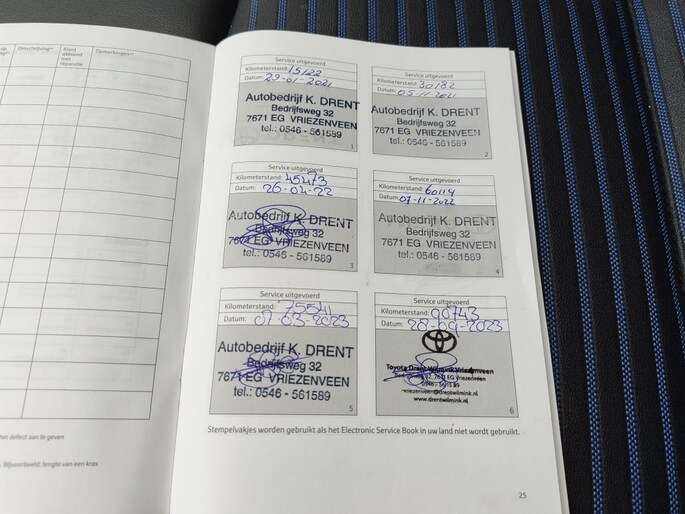 Omschrijving
Klant
akkoord
met
reparatie
Opmerkingen
Service uitgevoerd
Kilometerstand: 15122
Datum: 29-01-2021
Autobedrijf K. DRENT
Bedrijfsweg 32
7671 EG VRIEZENVEEN
tel.: 0546 - 561589
1
Service uitgevoerd
Kilometerstand: 30182
Datum: 05-11-2021
Autobedrijf K. DRENT
Bedrijfsweg 32
7671 EG VRIEZENVEEN
tel.: 0546 - 561589
2
Service uitgevoerd
Kilometerstand:
Datum: 26-04-22
Autobedrijf K. DRENT
Bedrijfsweg 32
7671 EG VRIEZENVEEN
tel.: 0546 - 561589
3
Service uitgevoerd
Kilometerstand: 60114
Datum: 07-11-2022
Autobedrijf K. DRENT
Bedrijfsweg 32
7671 EG VRIEZENVEEN
tel.: 0546 - 561589
4
Service uitgevoerd
Kilometerstand: 75541
Datum: 07-03-2023
Autobedrijf K. DRENT
Bedrijfsweg 32
7671 EG VRIEZENVEEN
tel.: 0546 - 561589
5
Service uitgevoerd
Kilometerstand: 90743
Datum: 28-09-2023
Toyota Drent Wilmink Vriezenveen
32, 7671 EG Vriezenveen
0546 - 561589
vriezenveen@drentwilmink.nl
www.drentwilmink.nl
6
Stempelvakjes worden gebruikt als het Electronic Service Book in uw land niet wordt gebruikt.
het defect aan te geven
Bijvoorbeeld: lengte van een kras
25